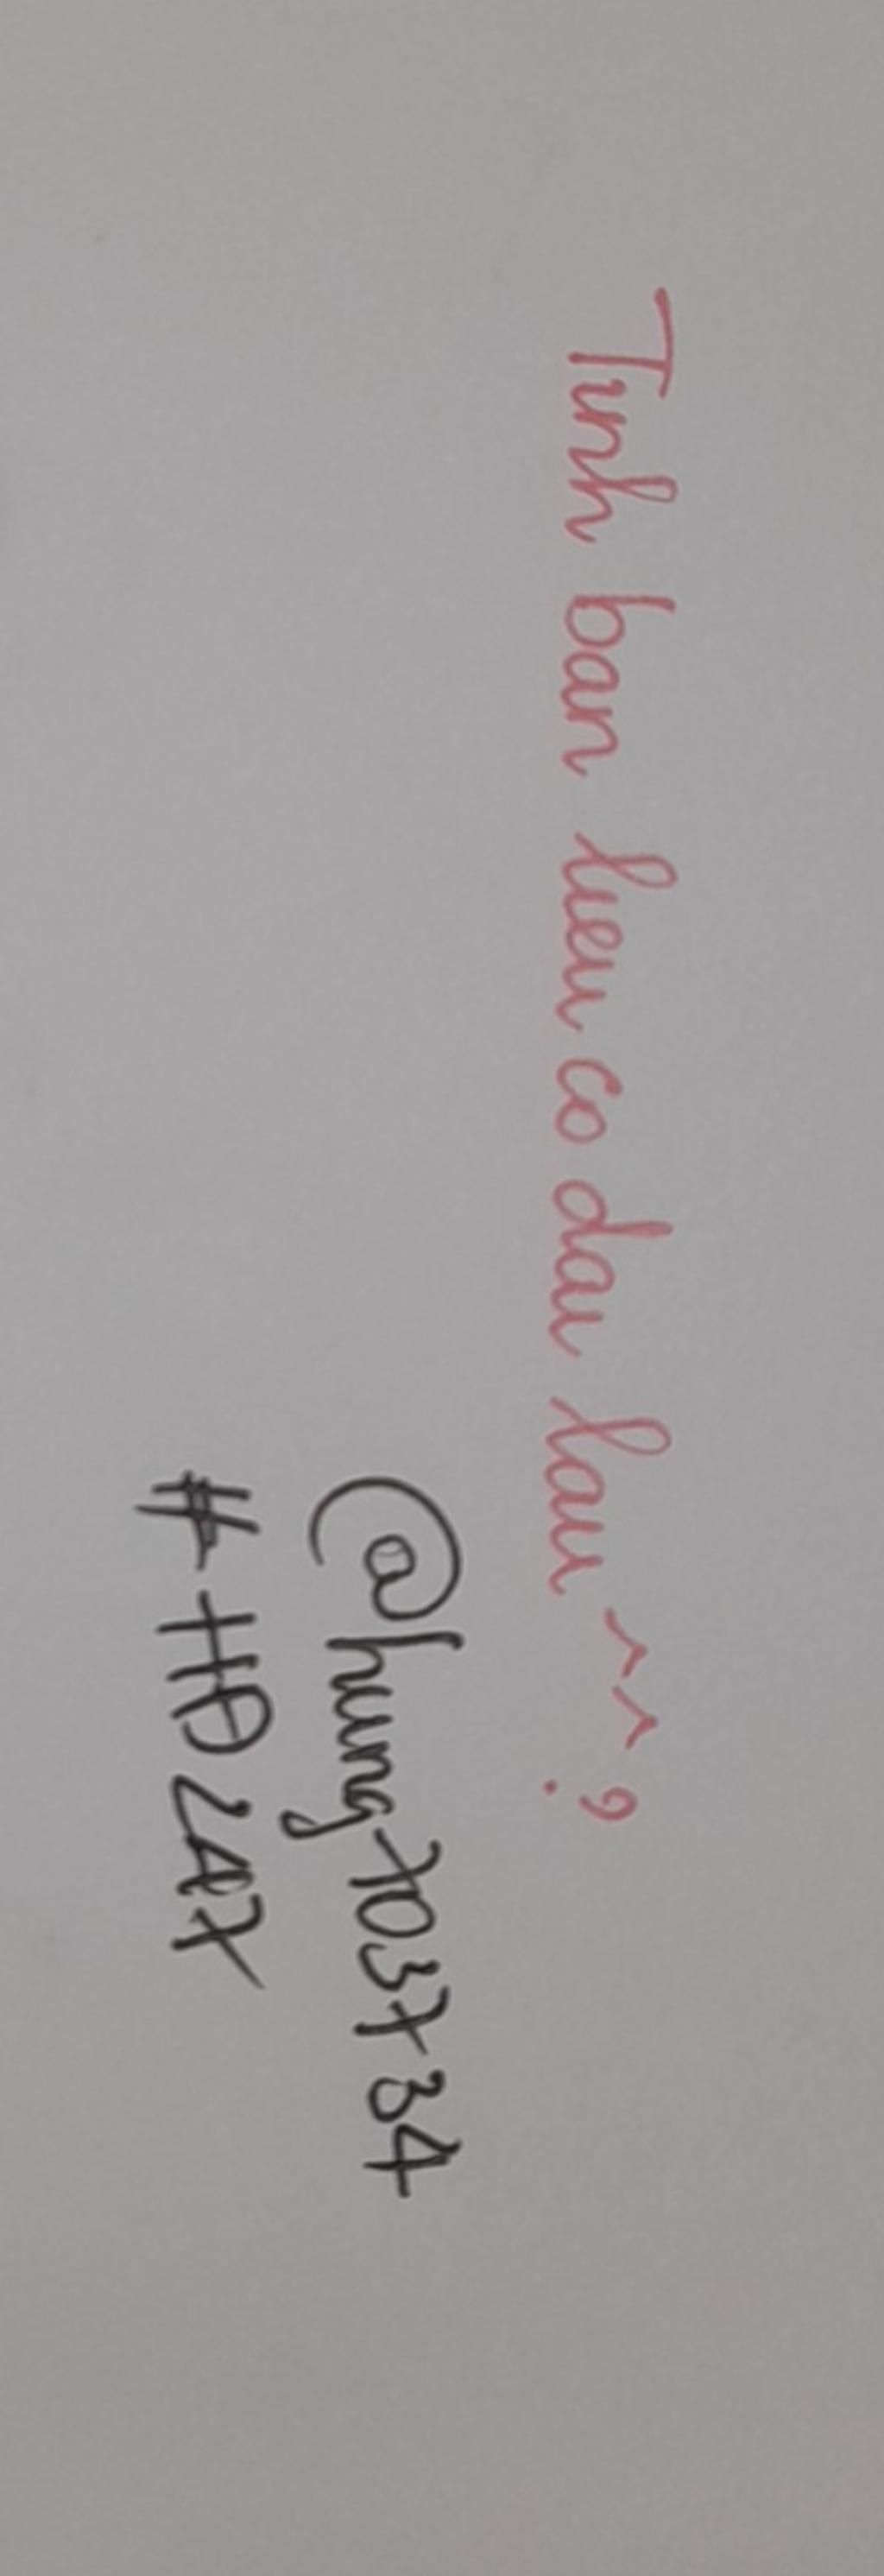 Tinh ban lieu co dai lau ^^ ?
@hung703734
#HĐ247